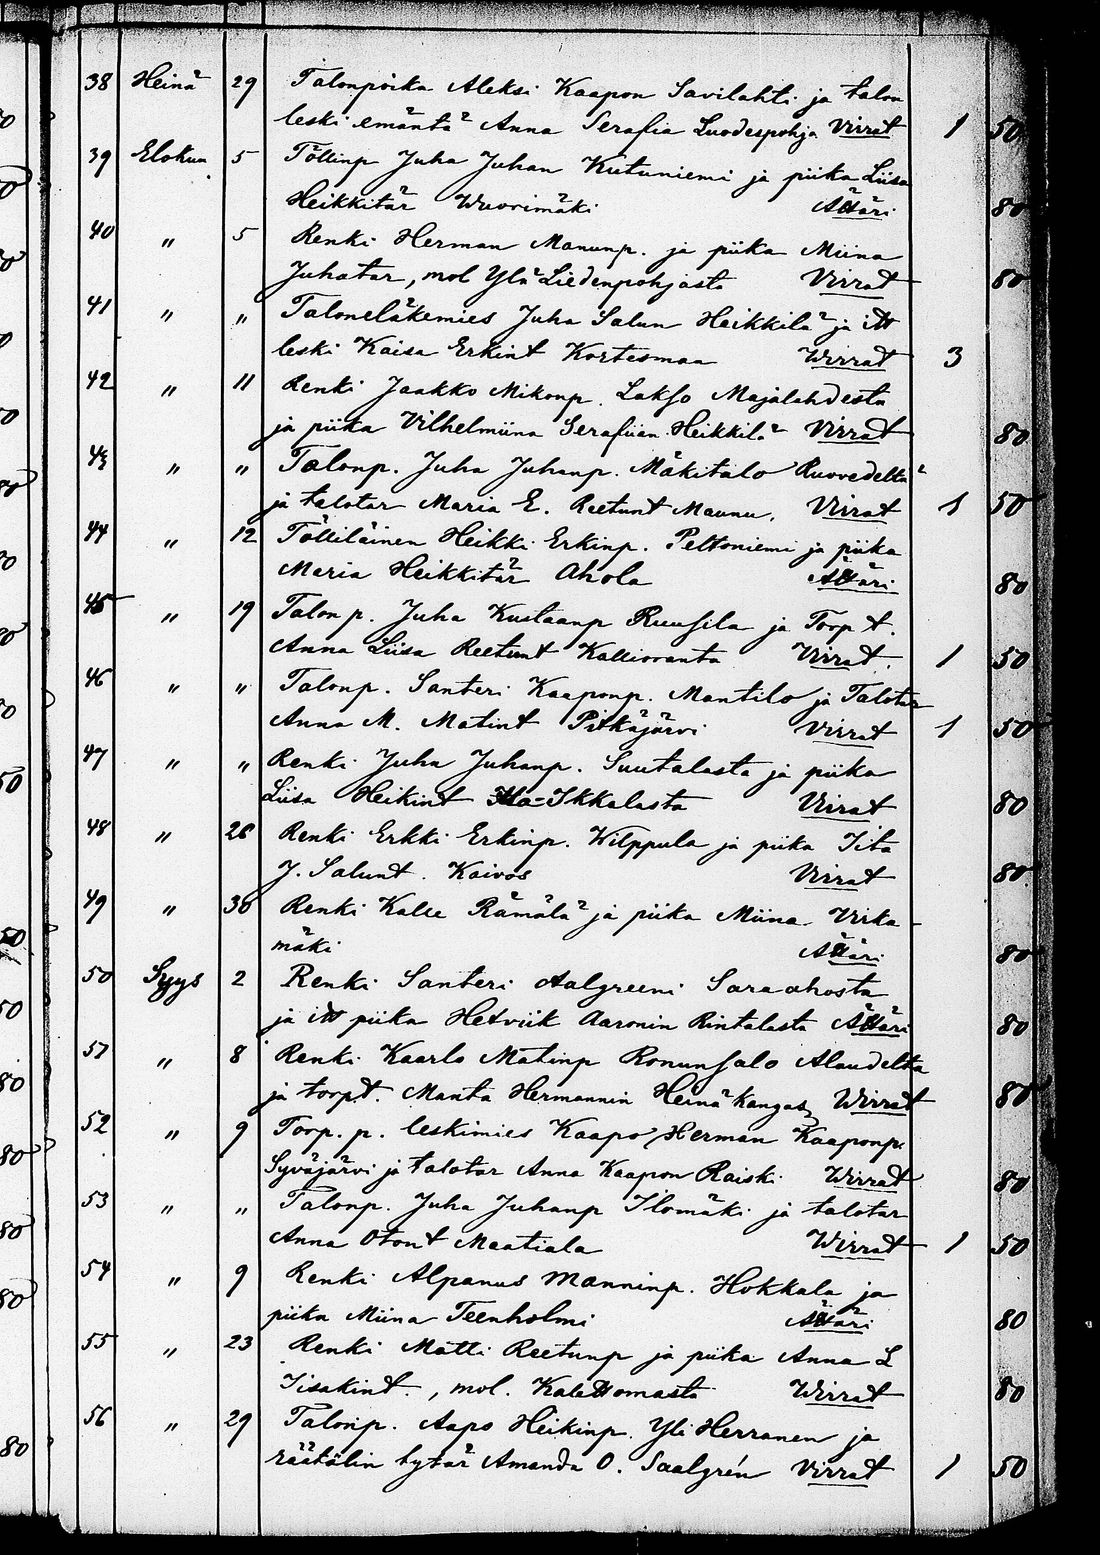 38 Heinä 29 Talonpoika Aleksi Kaapon Savilahti ja talon
leski emäntä Anna Serafia Luodespohja Virrat 1 50
39 Elokuu 5 Töllinp Juha Juhan Kutuniemi ja piika Liisa
Heikkitär Wuorimäki Ätsäri 80
40 " 5 Renki Herman Manunp. ja piika Miina
Juhatar, mol Ylä Liedenpohjasta Virrat 80
41 " " Taloneläkemies Juha Salun Heikkilä ja itt
leski Kaisa Erkint Kortesmaa Wirrat 3
42 " 11 Renki Jaakko Mikonp. Lakso Majalahdesta
ja piika Vilhelmiina Serafiian Heikkilä Virrat 80
43 " " Talonp. Juha Juhanp. Mäkitalo Ruovedeltä
ja talotar Maria E. Reetunt Maunu. Virrat 1 50
44 " 12 Tölliläinen Heikki Erkinp. Peltoniemi ja piika
Maria Heikkitär Ahola Ätsäri 80
45 " 19 Talonp. Juha Kustaanp Ruusila ja Torp t.
Anna Liisa Reetunt Kallioranta Virrat. 1 50
46 " " Talonp. Santeri Kaaponp. Mantilo ja Talotar
Anna M. Matint Pitkäjärvi Virrat 1 50
47 " " Renki Juha Juhanp. Suutalasta ja piika
Liisa Heikint Ikkalasta Virrat 80
48 " 26 Renki Erkki Erkinp. Wilppula ja piika Iita
J. Salunt. Koivos Virrat 80
49 " 30 Renki Kalle Rämälä ja piika Miina Virka-
mäki Ätsäri 80
50 Syys 2 Renki Santeri Aalgreeni Saraahosta
ja itt piika Hetviik Aaronin Rintalasta Ätsäri 80
51 " 8 Renki Kaarlo Matinp Ronunsalo Alaudelta
ja torpt. Manta Hermannin Heinäkangas Wirrat 80
52 " 9 Torp. p. leskimies Kaapo Herman Kaaponp.
Syväjärvi ja talotar Anna Kaapon Raiski Wirrat 80
53 " " Talonp. Juha Juhanp Ilomäki ja talotar
Anna Otont Maatiala Wirrat 1 50
54 " 9 Renki Alpanus Manninp. Hokkala ja
piika Miina Teenholmi Ätsäri 80
55 " 23 Renki Matti Reetunp ja piika Anna L
Iisakint, mol. Kalettomasta Wirrat 80
56 " 29 Talonp. Aapo Heikinp. Yli Herranen ja
räätälin tytär Amanda O. Saalgrén Virrat 1 50